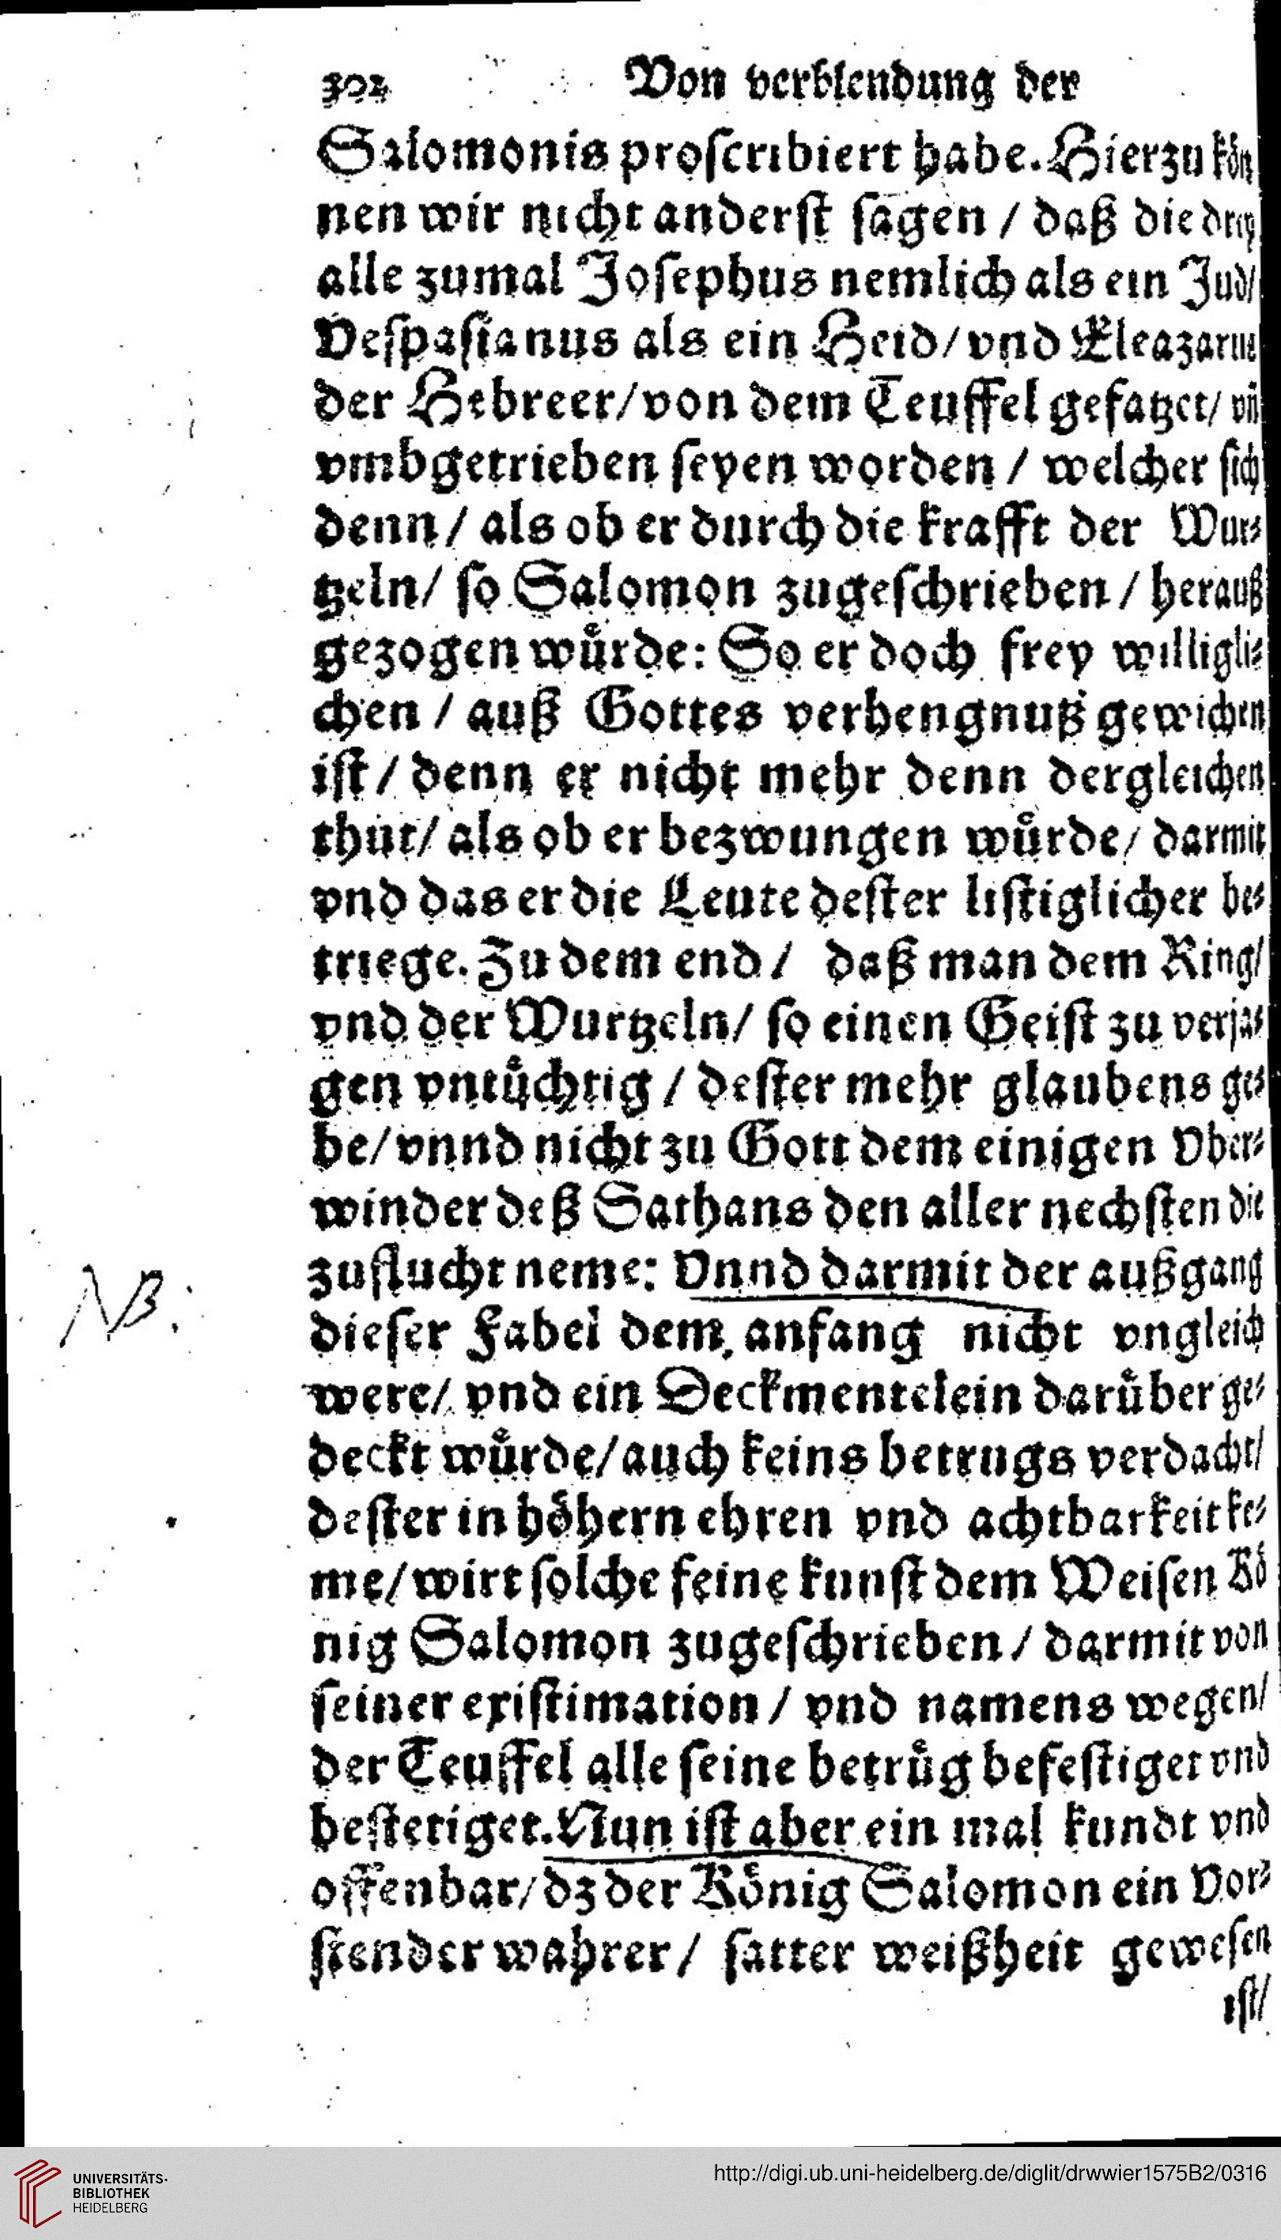 302 Von verblendung der
Salomonis proscribiert habe. Hierzu kön
nen wir nicht anderst sagen / daß die drey
alle zumal Josephus nemlich als ein Jud/
Vespasianus als ein Heid/vnd Eleazarus
der Hebreer/von dem Teuffel gefatzet/ vñ
vmbgetrieben seyen worden / welcher sich
denn / als ob er durch die krafft der Wur⸗
tzeln/ so Salomon zugeschrieben / herauß
gezogen wuͤrde: So er doch frey willigli⸗
chen / auß Gottes verhengnuß gewichen
ist / denn er nicht mehr denn dergleichen
thut/ als ob er bezwungen wuͤrde/ darmit
vnd das er die Leute dester listiglicher be⸗
triege. Zu dem end / daß man dem Ring/
vnd der Wurtzeln/ so einen Geist zu verja⸗
gen vntuͤchtig / dester mehr glaubens ge⸗
be/vnnd nicht zu Gott dem einigen Vber⸗
winder deß Sathans den aller nechsten die
zuflucht neme: Vnnd darmit der außgang
NB:
dieser Fabel dem anfang nicht vngleich
were/ vnd ein Deckmentelein daruͤber ge⸗
deckt wuͤrde/auch keins betrugs verdacht/
dester in hoͤhern ehren vnd achtbarkeit ke⸗
me/wirt solche feine kunst dem Weisen Koͤ
nig Salomon zugeschrieben / darmit von
seiner existimation / vnd namens wegen/
der Teuffel alle seine betruͤg befestiget vnd
bestetiget. Nun ist aber ein mal kundt vnd
offenbar/dz der Koͤnig Salomon ein Vor⸗
stender wahrer / satter weißheit gewesen
ist/
UNIVERSITÄTS-
BIBLIOTHEK
HEIDELBERG
http://digi.ub.uni-heidelberg.de/diglit/drwwier1575B2/0316